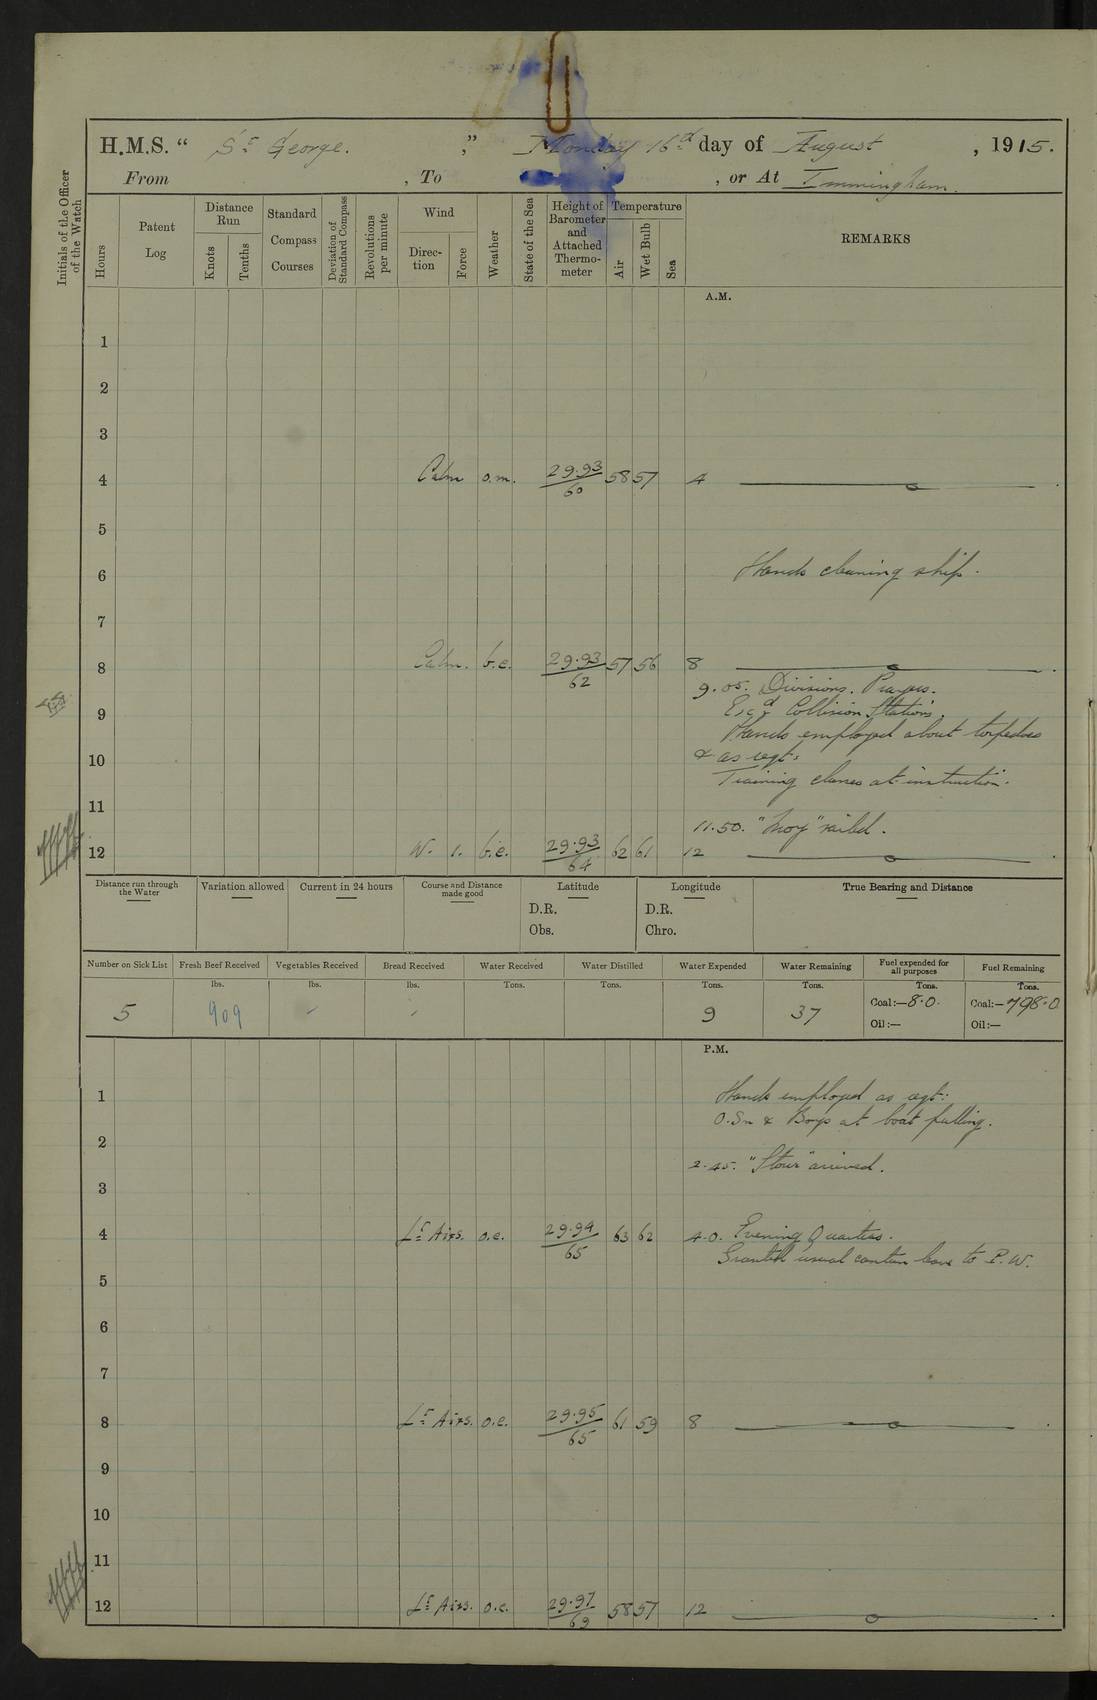 H.M.S. “ St George. ,” Monday 16th day of August , 1915.
From , To , or At Immingham.
Initials of the Officer of the Watch
Hours
Patent Log
Distance Run
Knots
Tenths
Standard Compass Courses
Deviation of Standard Compass
Revolutions per minute
Wind
Direction
Force
Weather
State of the Sea
Height of Barometer and Attached Thermometer
Temperature
Air
Wet Bulb
Sea
REMARKS
A.M.
1
2
3
4 Calm o.m. 29.93/60 58 57 4
5
6 Hands cleaning ship.
7
8 Calm. b.c. 29.93/62 57 56 8
9.05. Divisions. Prayers.
9 Exd Collision Stations.
Hands employed about torpedoes
10 & as reqt:
Training classes at instruction.
11
11.50. " " sailed.
12 W. 1. b.c. 29.93/64 62 61 12
Distance run through the Water
Variation allowed
Current in 24 hours
Course and Distance made good
Latitude
D.R.
Obs.
Longitude
D.R.
Chro.
True Bearing and Distance
Number on Sick List
Fresh Beef Received
Vegetables Received
Bread Received
Water Received
Water Distilled
Water Expended
Water Remaining
Fuel expended for all purposes
Fuel Remaining
lbs. lbs. lbs. Tons. Tons. Tons. Tons. Tons. Tons.
5 909 - - 9 37 Coal:—8.0. Coal:—798.0
Oil:— Oil:—
P.M.
1 Hands employed as reqt:
O.Sn & Boys at boat pulling.
2
2.45. "Stour" arrived.
3
4 Lt Airs. o.c. 29.94/65 63 62 4.0. Evening Quarters.
Granted usual canteen leave to P.W.
5
6
7
8 Lt Airs. o.c. 29.95/65 61 59 8
9
10
11
12 Lt Airs. o.c. 29.97/69 58 57 12